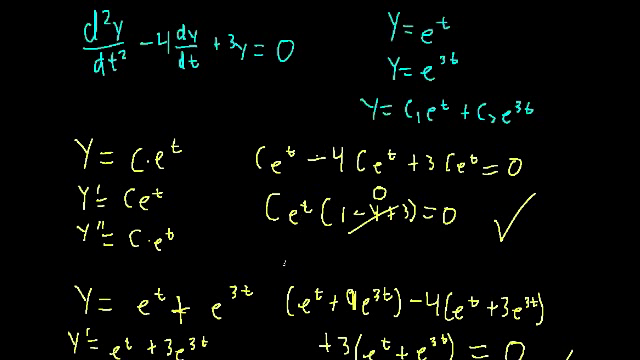 d²y/dt² - 4 dy/dt + 3y = 0
y = e^t
y = e^3t
y = c₁e^t + c₂e^3t
y = c·e^t
y' = ce^t
y'' = c·e^t
ce^t - 4ce^t + 3ce^t = 0
0
ce^t (1 - 4 + 3) = 0 ✓
y = e^t + e^3t
y' = e^t + 3e^3t
(e^t + 9e^3t) - 4(e^t + 3e^3t)
+3(e^t + e^3t) = 0